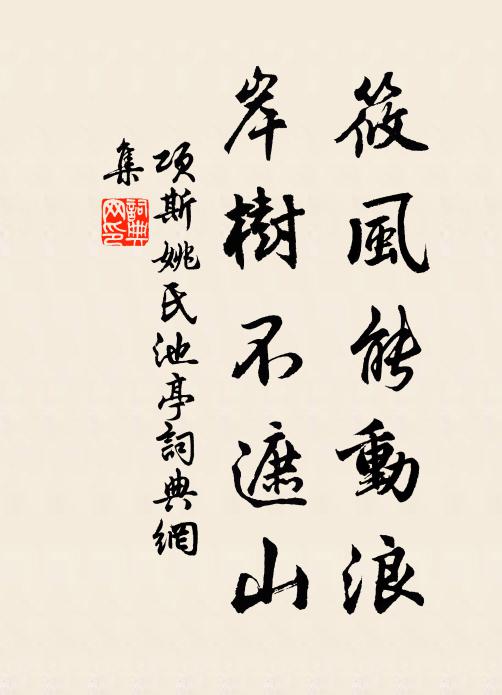 筱風能動浪
岸樹不遮山
項斯姚氏池亭詞典網
集
詞典
网印